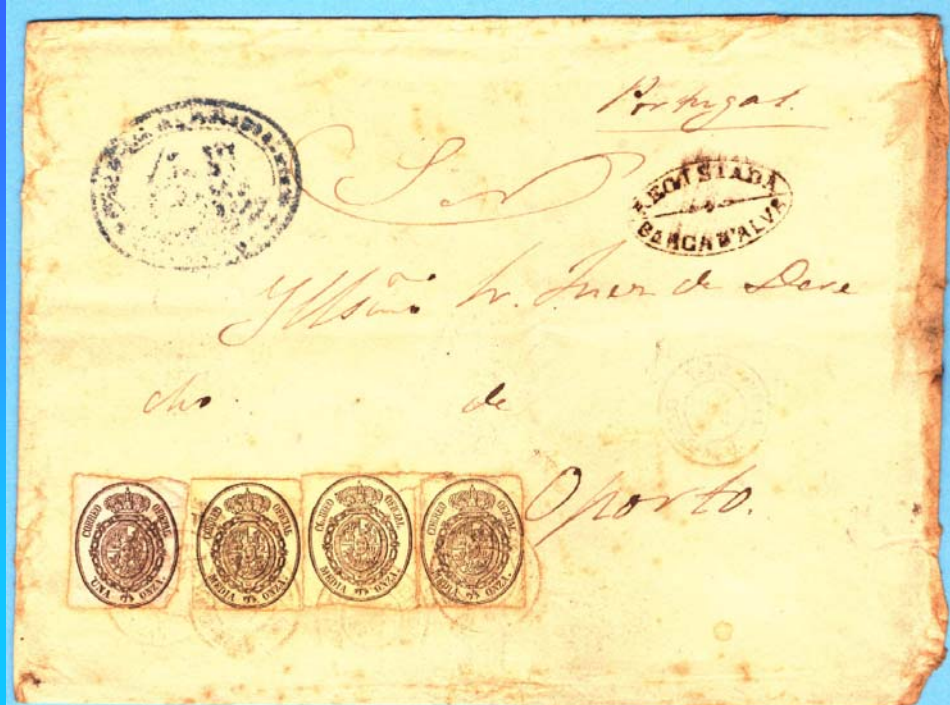 Portugal.
S. N
REGISTADA
BARCA D'ALVA
Sr. Juez de Dere
cho de
Oporto.
CORREO OFICIAL
UNA ONZA.
CORREO OFICIAL
MEDIA ONZA.
CORREO OFICIAL
MEDIA ONZA.
CORREO OFICIAL
MEDIA ONZA.